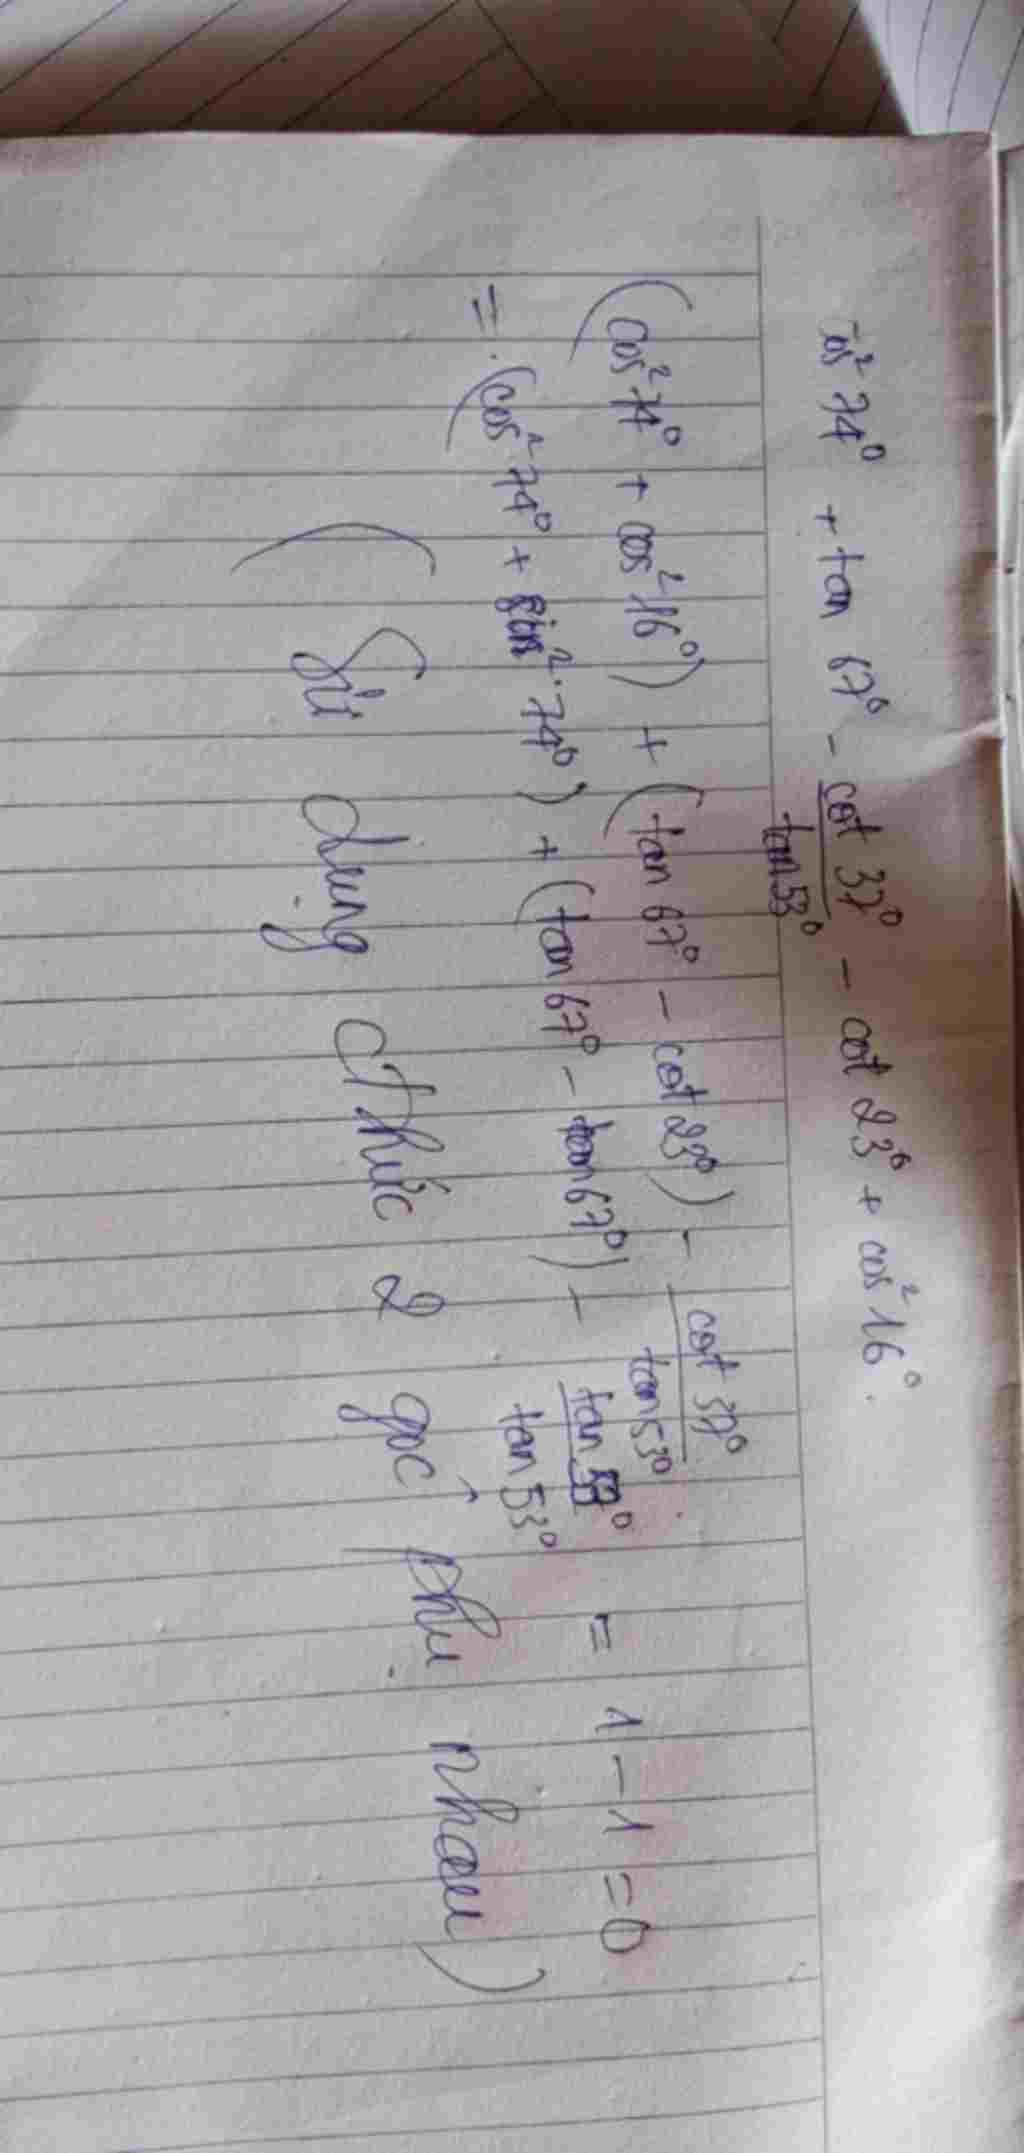 cos² 74° + tan 67° - cot 37° / tan 53° - cot 23° + cos² 16°.
(cos² 74° + cos² 16°) + (tan 67° - cot 23°) - cot 37° / tan 53°
= (cos² 74° + sin² 74°) + (tan 67° - tan 67°) - tan 53° / tan 53° = 1 - 1 = 0
(Sử dụng CThức 2 góc phụ nhau)